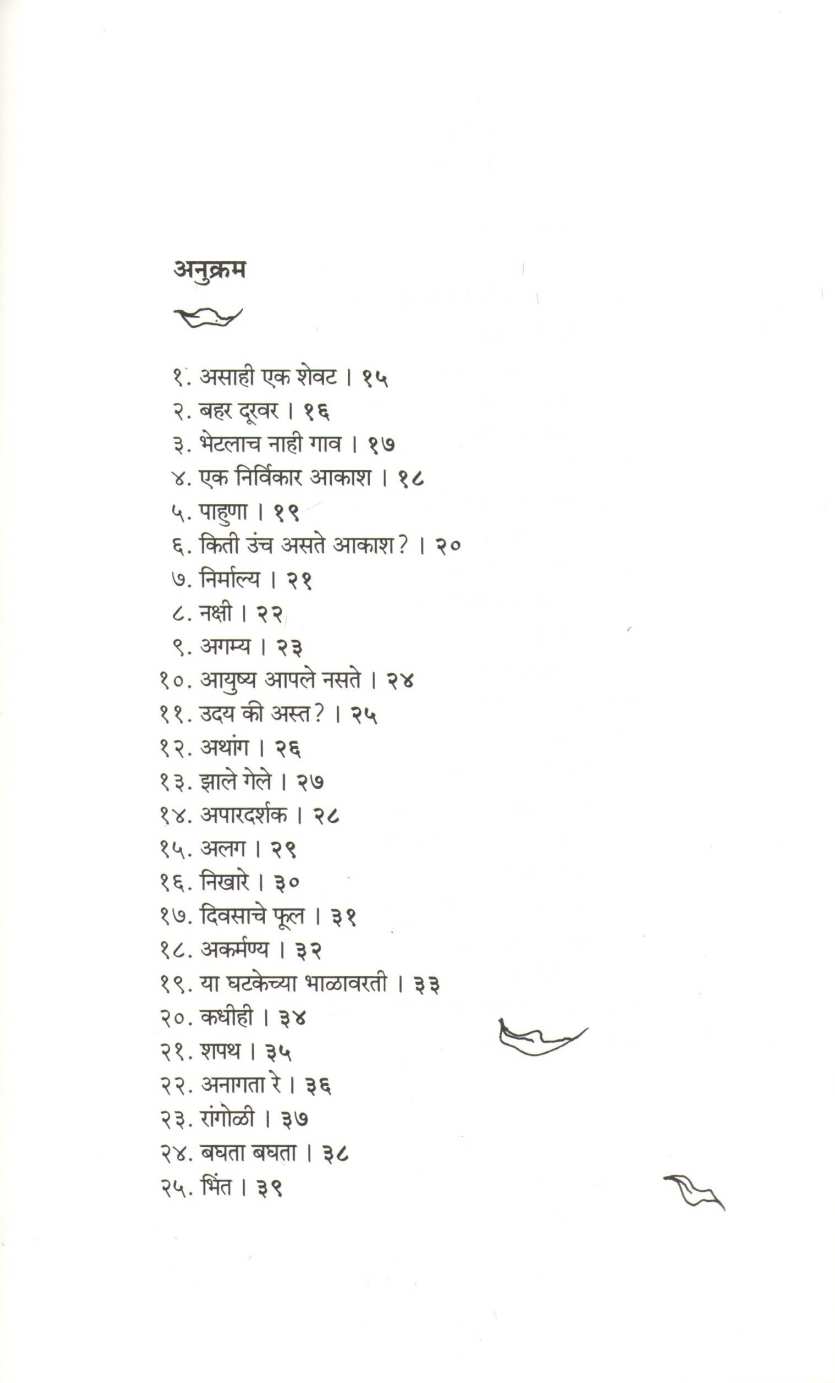 अनुक्रम
१. असाही एक शेवट । १५
२. बहर दूरवर । १६
३. भेटलाच नाही गाव । १७
४. एक निर्विकार आकाश । १८
५. पाहुणा । १९
६. किती उंच असते आकाश? । २०
७. निर्माल्य । २१
८. नक्षी । २२
९. अगम्य । २३
१०. आयुष्य आपले नसते । २४
११. उदय की अस्त? । २५
१२. अथांग । २६
१३. झाले गेले । २७
१४. अपारदर्शक । २८
१५. अलग । २९
१६. निखारे । ३०
१७. दिवसाचे फूल । ३१
१८. अकर्मण्य । ३२
१९. या घटकेच्या भाळावरती । ३३
२०. कधीही । ३४
२१. शपथ । ३५
२२. अनागता रे । ३६
२३. रांगोळी । ३७
२४. बघता बघता । ३८
२५. भिंत । ३९